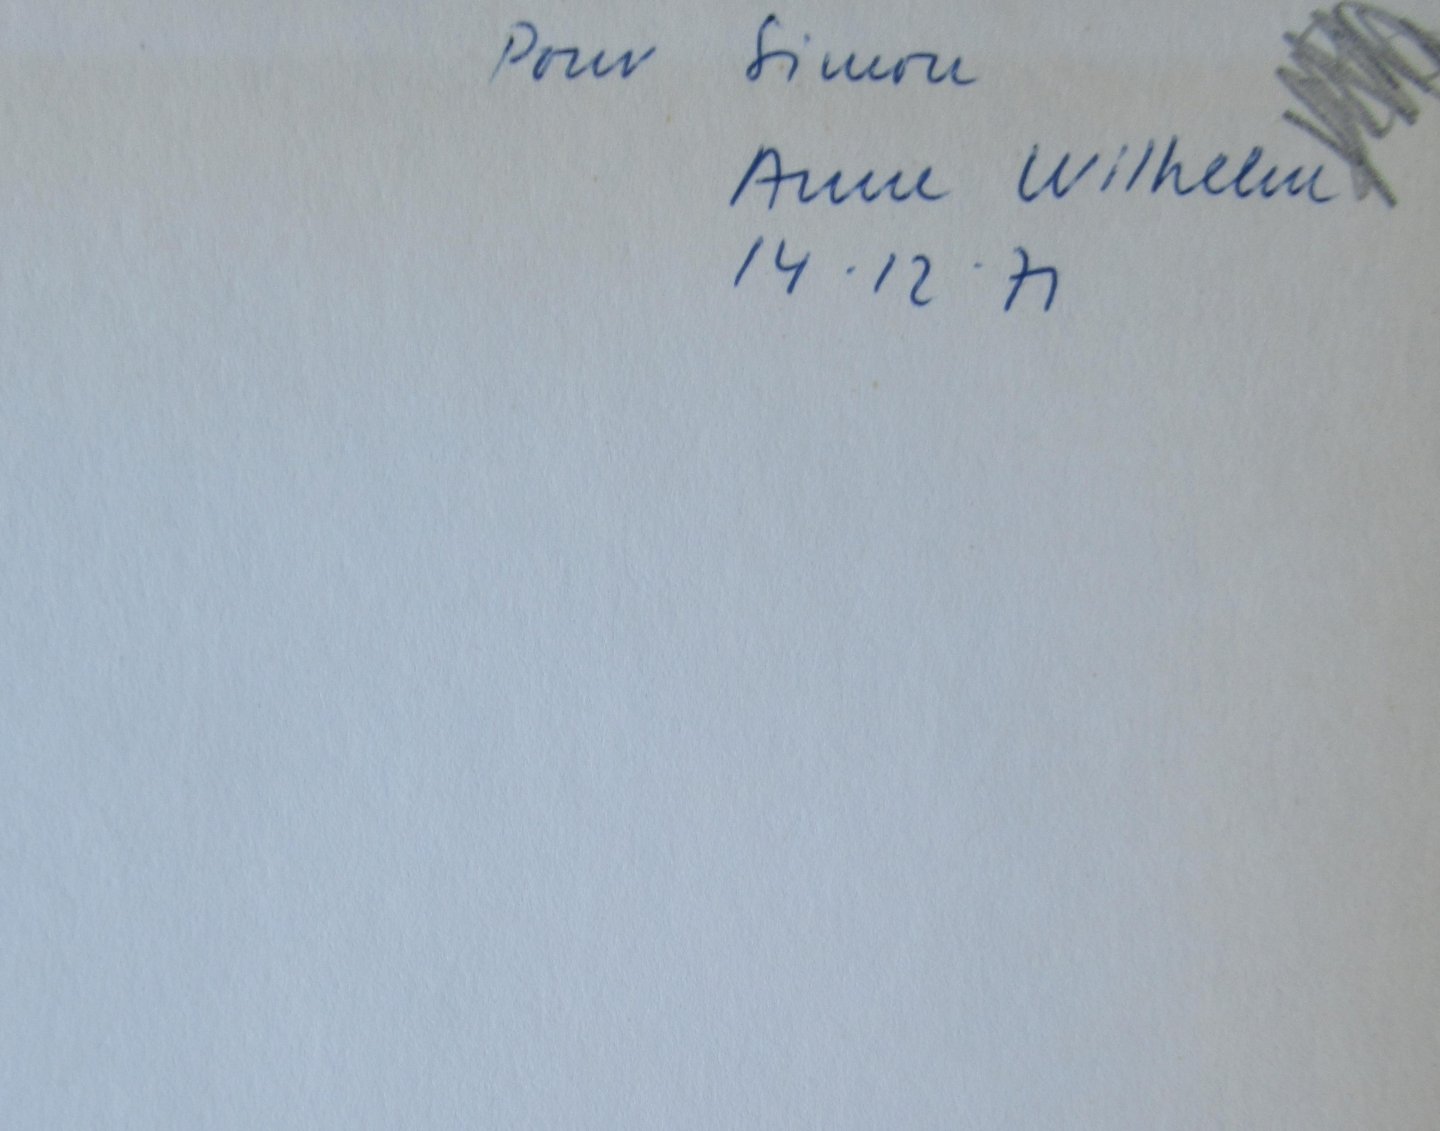 Pour Simon
Anne Wilhelm
14.12.71